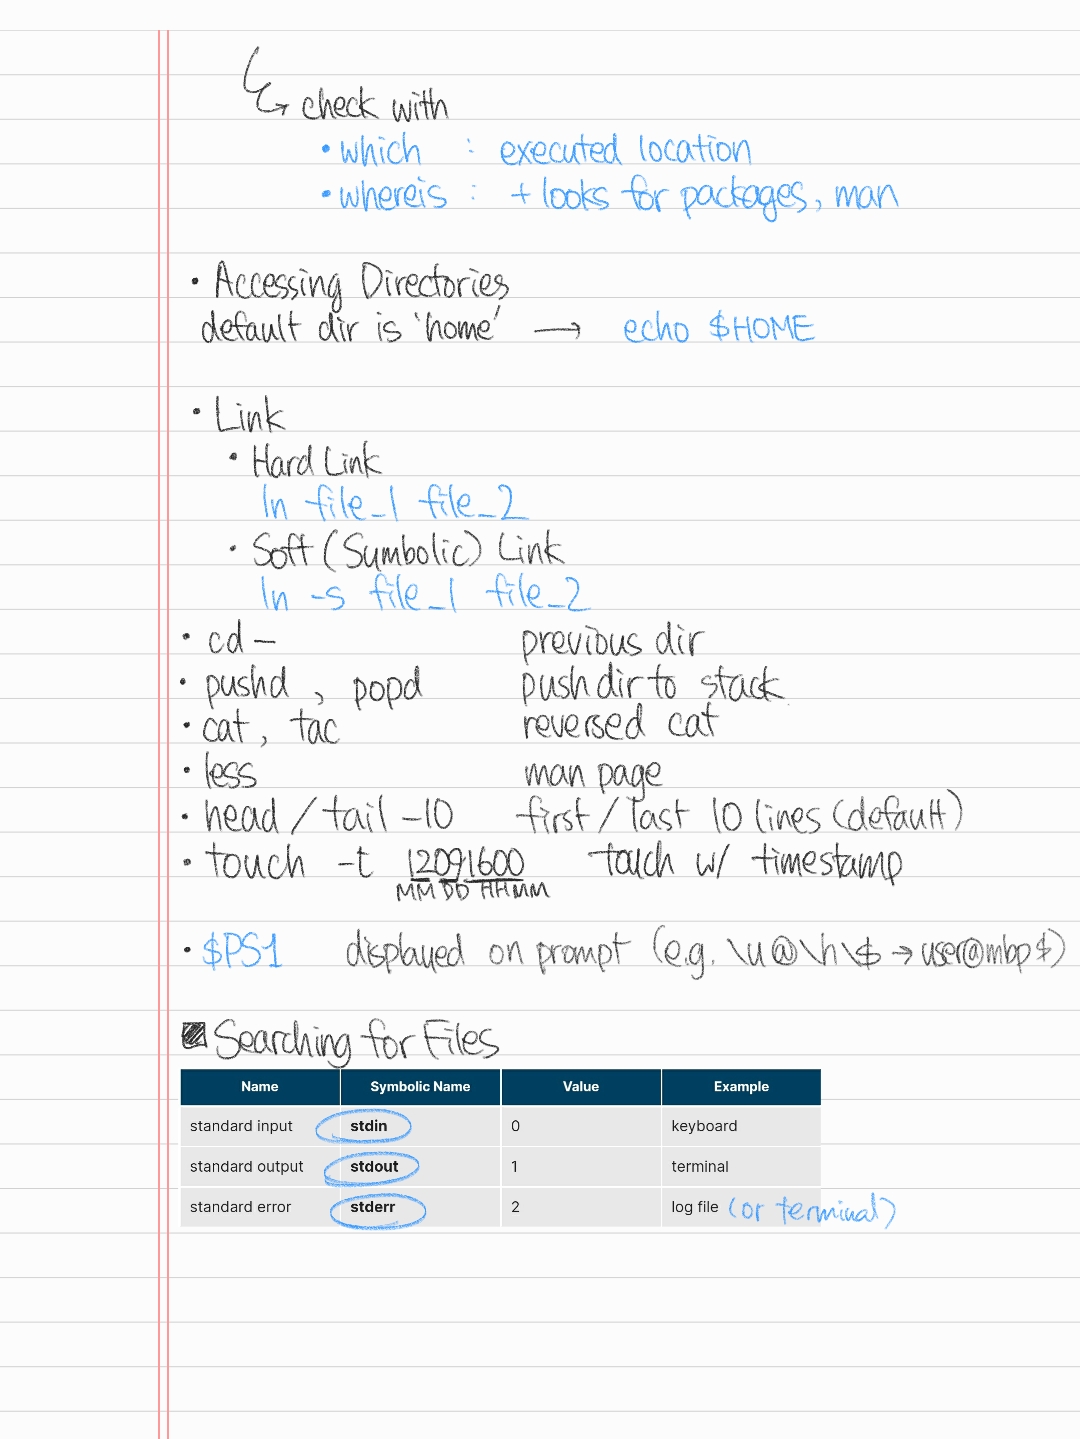 check with
• which : executed location
• whereis : + looks for packages, man
• Accessing Directories
default dir is 'home' → echo $HOME
• Link
• Hard Link
ln file_1 file_2
• Soft (Symbolic) Link
ln -s file_1 file_2
• cd - previous dir
• pushd , popd push dir to stack
• cat , tac reversed cat
• less man page
• head / tail -10 first / last 10 lines (default)
• touch -t 12091600 touch w/ timestamp
MM DD HH MM
• $PS1 displayed on prompt (e.g. \u@\h\$ → user@mbp$)
Searching for Files
Name Symbolic Name Value Example
standard input stdin 0 keyboard
standard output stdout 1 terminal
standard error stderr 2 log file (or terminal)